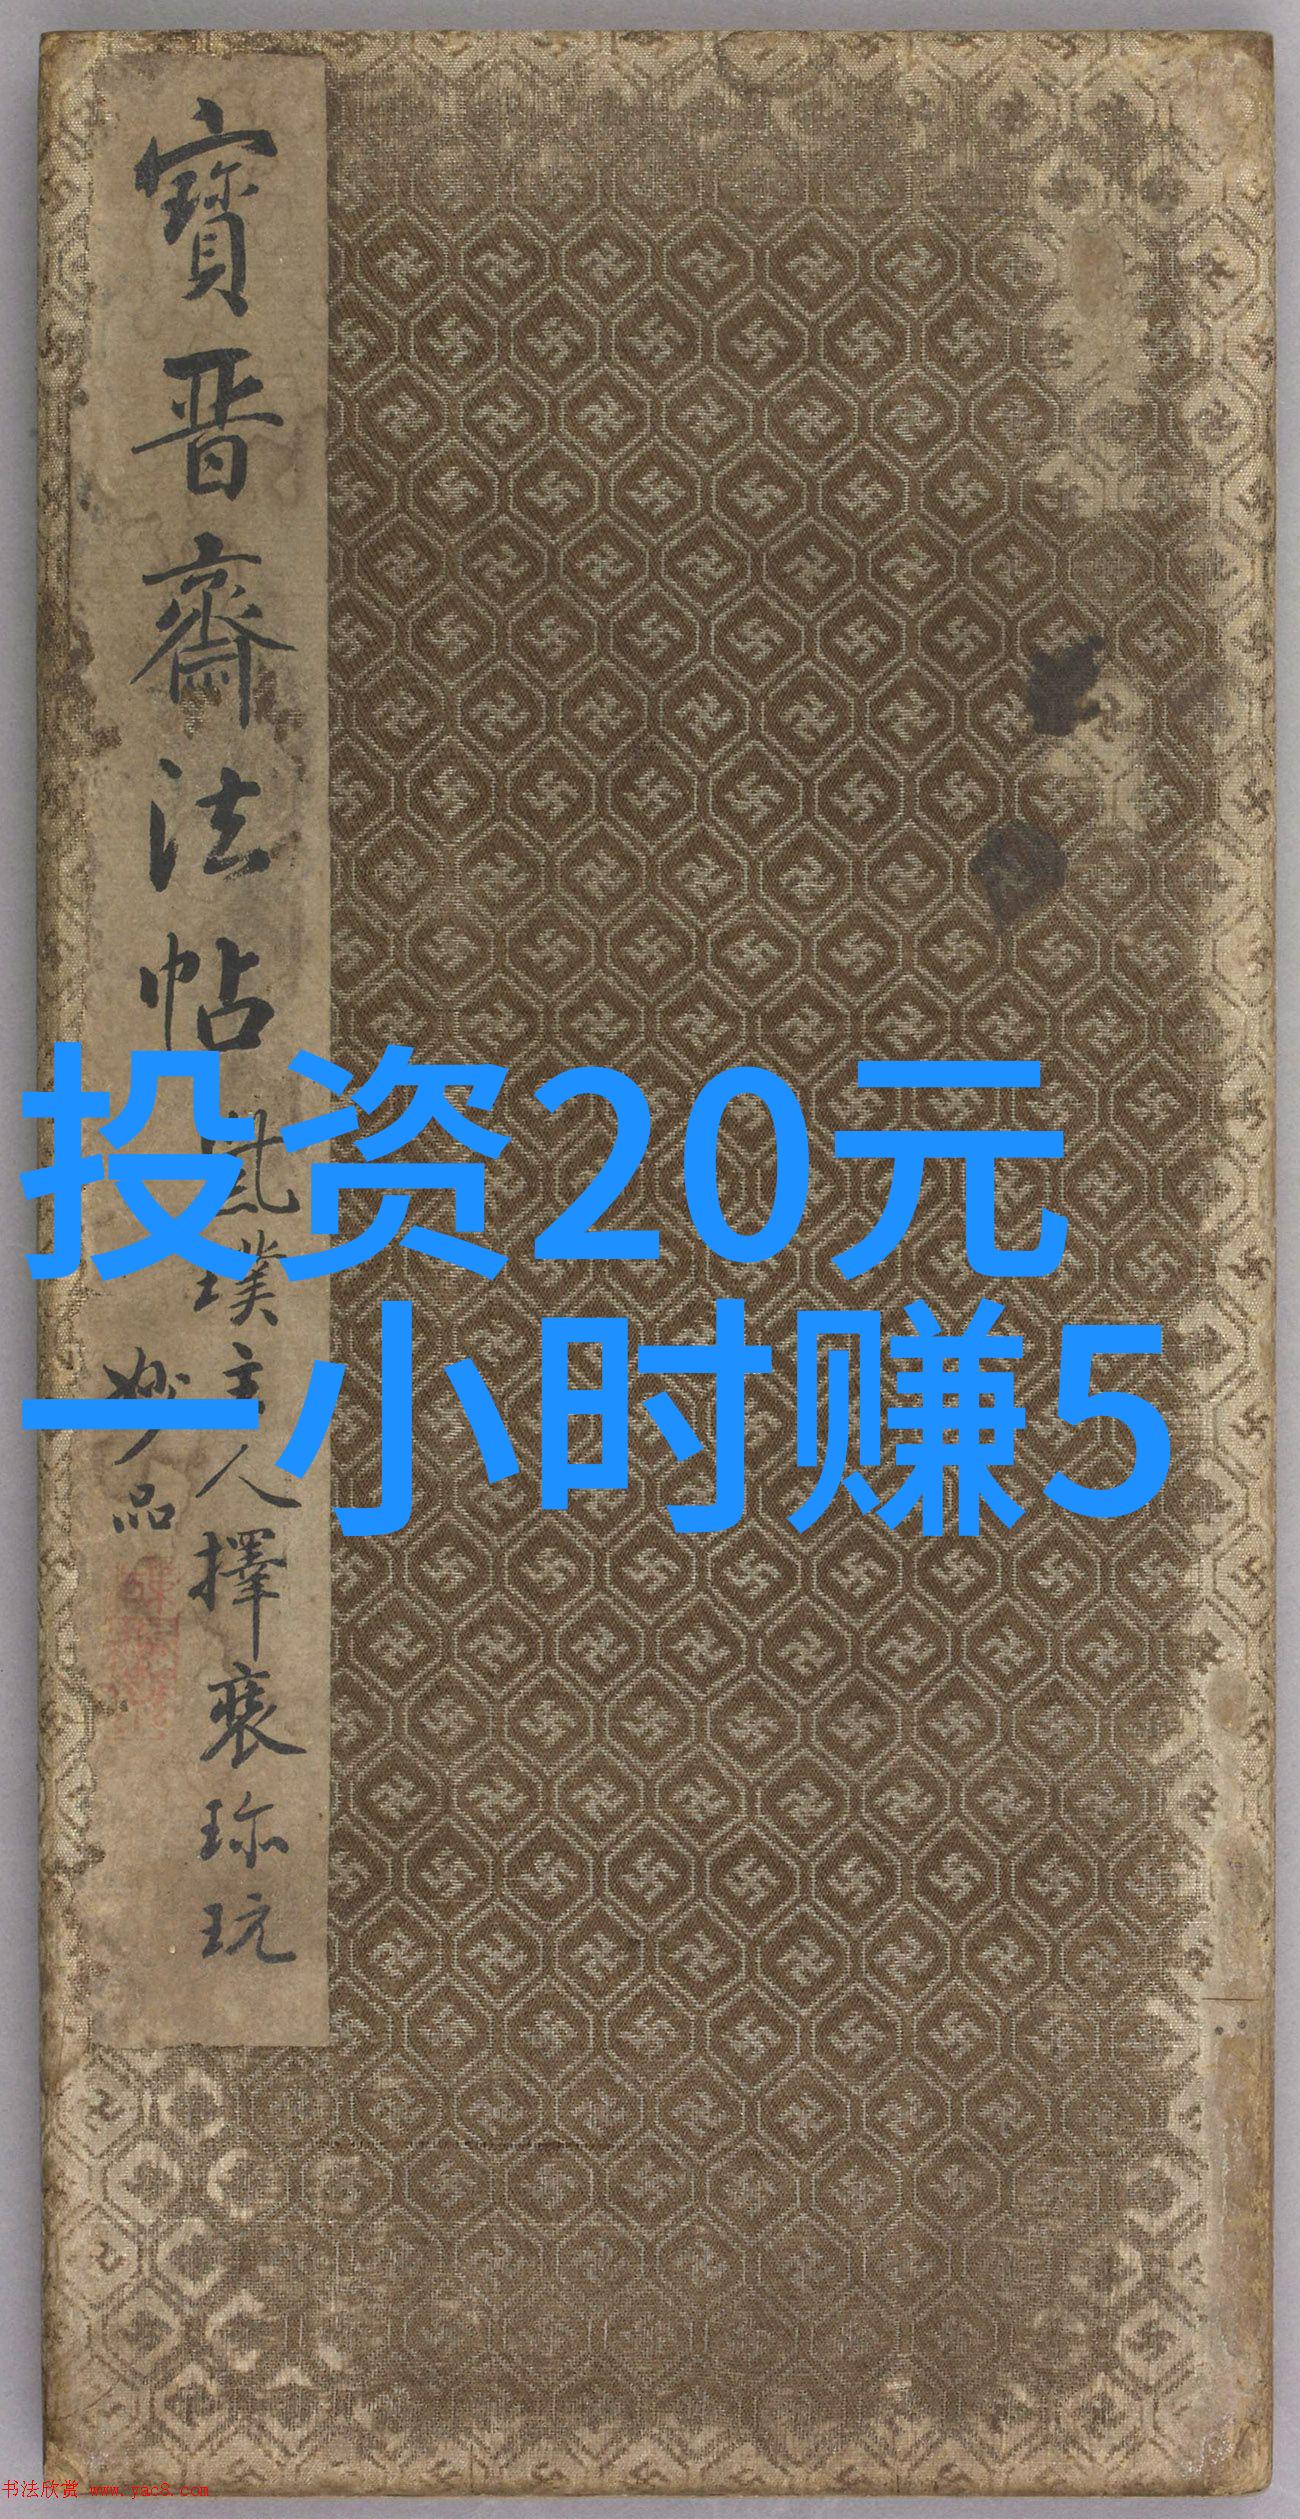 寳晋齋法帖
風璞主人擇裘珎玩
妙品
投资20元
一小时赚5
书法欣赏 www.yac8.com